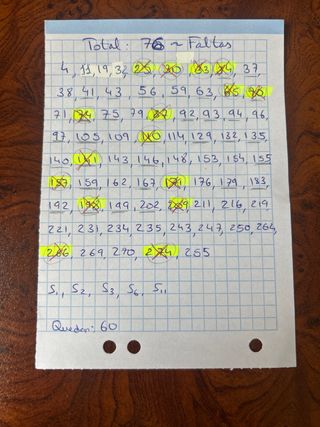 Total: 76 ~ Faltas
4, 11, 19, 34, 37,
38, 41, 43, 56, 59, 63, 65, 90,
71, 74, 75, 79, 92, 93, 94, 96,
97, 105, 109, 110, 114, 129, 132, 135,
140, 141, 143, 146, 148, 153, 154, 155
157, 159, 162, 167, 171, 176, 179, 183,
192, 198, 199, 202, 209, 211, 216, 219
221, 231, 234, 235, 243, 247, 250, 264,
266, 269, 270, 274, 285
S1, S2, S3, S6, S11
Quedan: 60